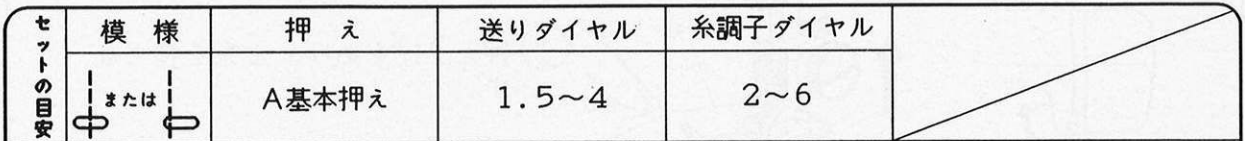 セットの目安
模様 押え 送りダイヤル 糸調子ダイヤル
または A基本押え 1.5～4 2～6